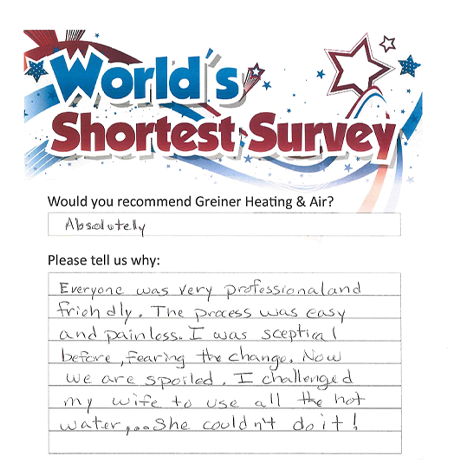 World's
Shortest Survey
Would you recommend Greiner Heating & Air?
Absolutely
Please tell us why:
Everyone was very professional and
friendly. The process was easy
and painless. I was sceptical
before, fearing the change. Now
we are spoiled. I challenged
my wife to use all the hot
water,...She couldn't do it!